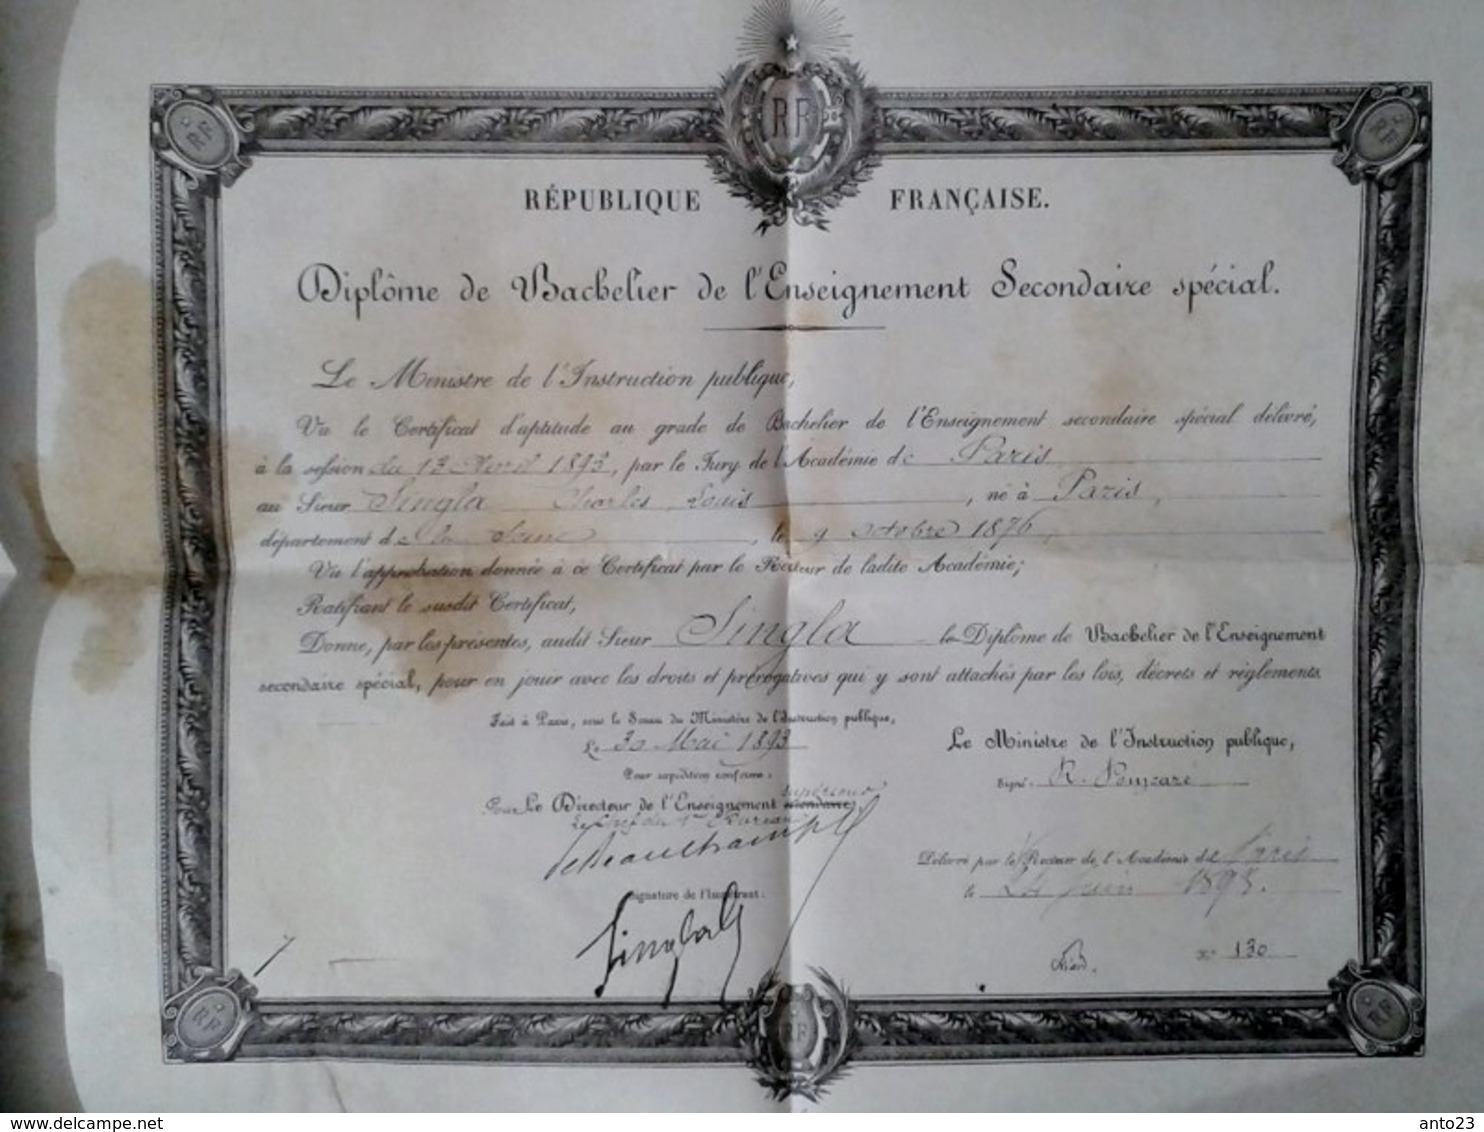 RF
RF
RÉPUBLIQUE FRANÇAISE.
Diplôme de Bachelier de l'Enseignement Secondaire spécial.
Le Ministre de l'Instruction publique,
Vu le Certificat d'aptitude au grade de Bachelier de l'Enseignement secondaire spécial délivré,
à la session du 13 Avril 1893, par le Jury de l'Académie de Paris
au Sieur Singla Charles Louis, né à Paris,
département de la Seine, le 9 octobre 1876,
Vu l'approbation donnée à ce Certificat par le Recteur de ladite Académie;
Ratifiant le susdit Certificat,
Donne, par les présentes, audit Sieur Singla le Diplôme de Bachelier de l'Enseignement
secondaire spécial, pour en jouir avec les droits et prérogatives qui y sont attachés par les lois, décrets et règlements.
Fait à Paris, sous le Sceau du Ministère de l'Instruction publique,
Le 30 Mai 1893
Pour expédition conforme:
Pour Le Directeur de l'Enseignement secondaire supérieur
Le Chef du 1er Bureau
Signature de l'Impétrant:
Singla Ch
Le Ministre de l'Instruction publique,
Signé: R. Poincaré
Délivré par le Recteur de l'Académie de Paris
le 24 Juin 1893.
N° 130
RF
RF
RF
anto23